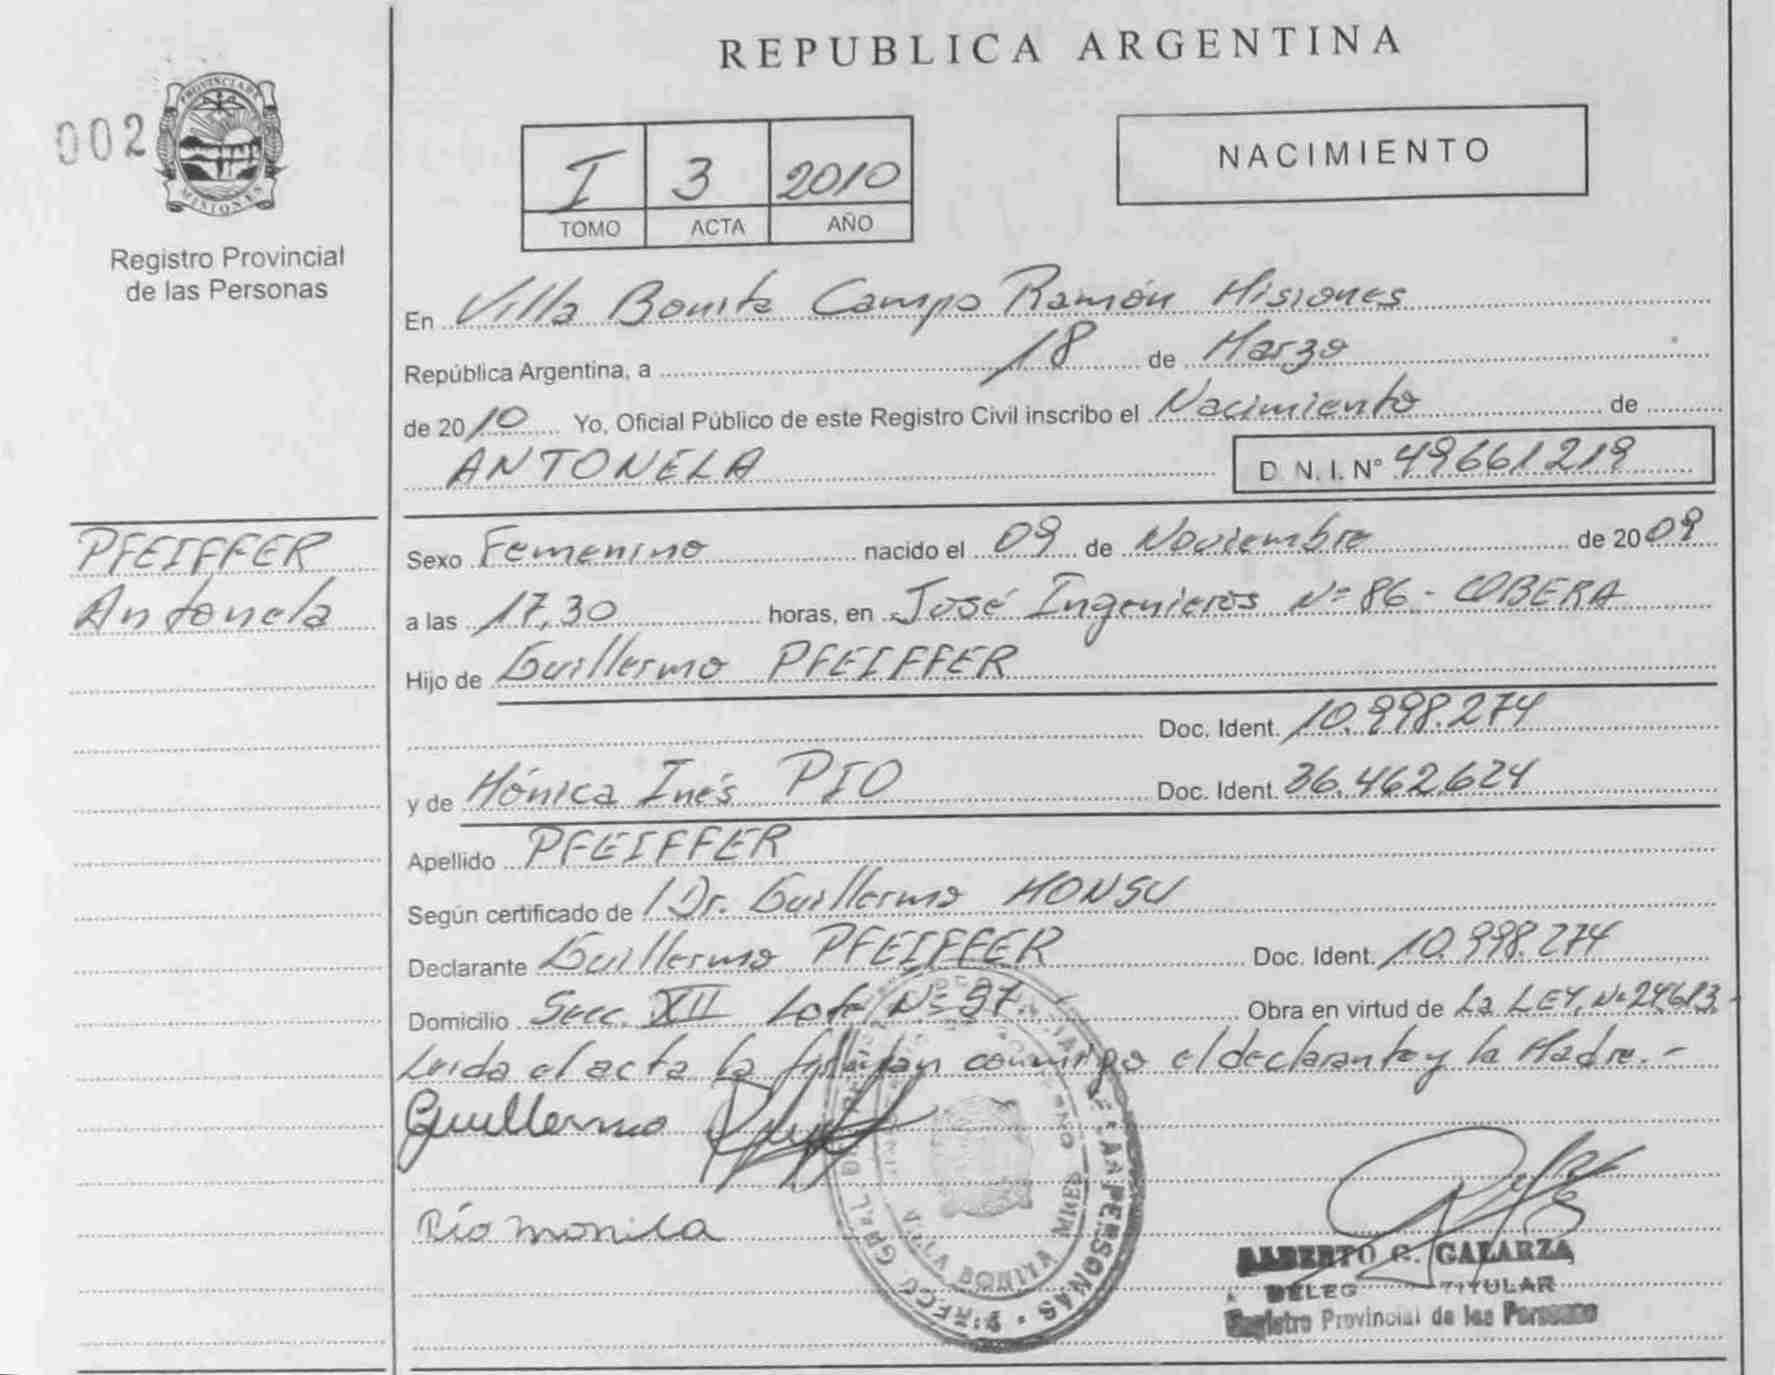 REPUBLICA ARGENTINA
002
PROVINCIA DE
MISIONES
Registro Provincial
de las Personas
I 3 2010
TOMO ACTA AÑO
NACIMIENTO
En Villa Bonita Campo Ramón Misiones
República Argentina, a 18 de Marzo
de 2010 Yo, Oficial Público de este Registro Civil inscribo el Nacimiento de
ANTONELA D.N.I. Nº 49661219
PFEIFFER
Antonela
Sexo Femenino nacido el 09 de Noviembre de 2009
a las 17,30 horas, en José Ingenieros Nº 86 - OBERA
Hijo de Guillermo PFEIFFER
Doc. Ident. 10.998.274
y de Mónica Inés PIO Doc. Ident. 36.462.624
Apellido PFEIFFER
Según certificado de Dr. Guillermo MONSU
Declarante Guillermo PFEIFFER Doc. Ident. 10.998.274
Domicilio Secc. XII Lote Nº 97.- Obra en virtud de La LEY. Nº 24613.-
Leida el acta la firman conmigo el declarante y la Madre.-
Guillermo
Pío monica
VILLA BONITA MNES
PERSONAS
ALBERTO G. GALARZA
DELEG TITULAR
Registro Provincial de las Personas